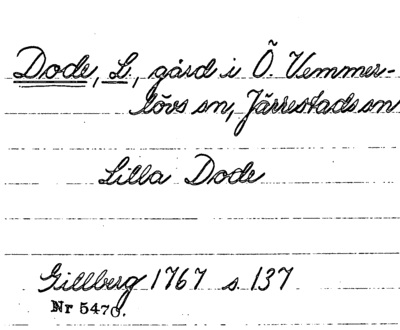 Dode, L., gård i Ö. Vemmer-
lövs sn, Järrestads
Lilla Dode
Gillberg 1767 s 137
Nr 5470.